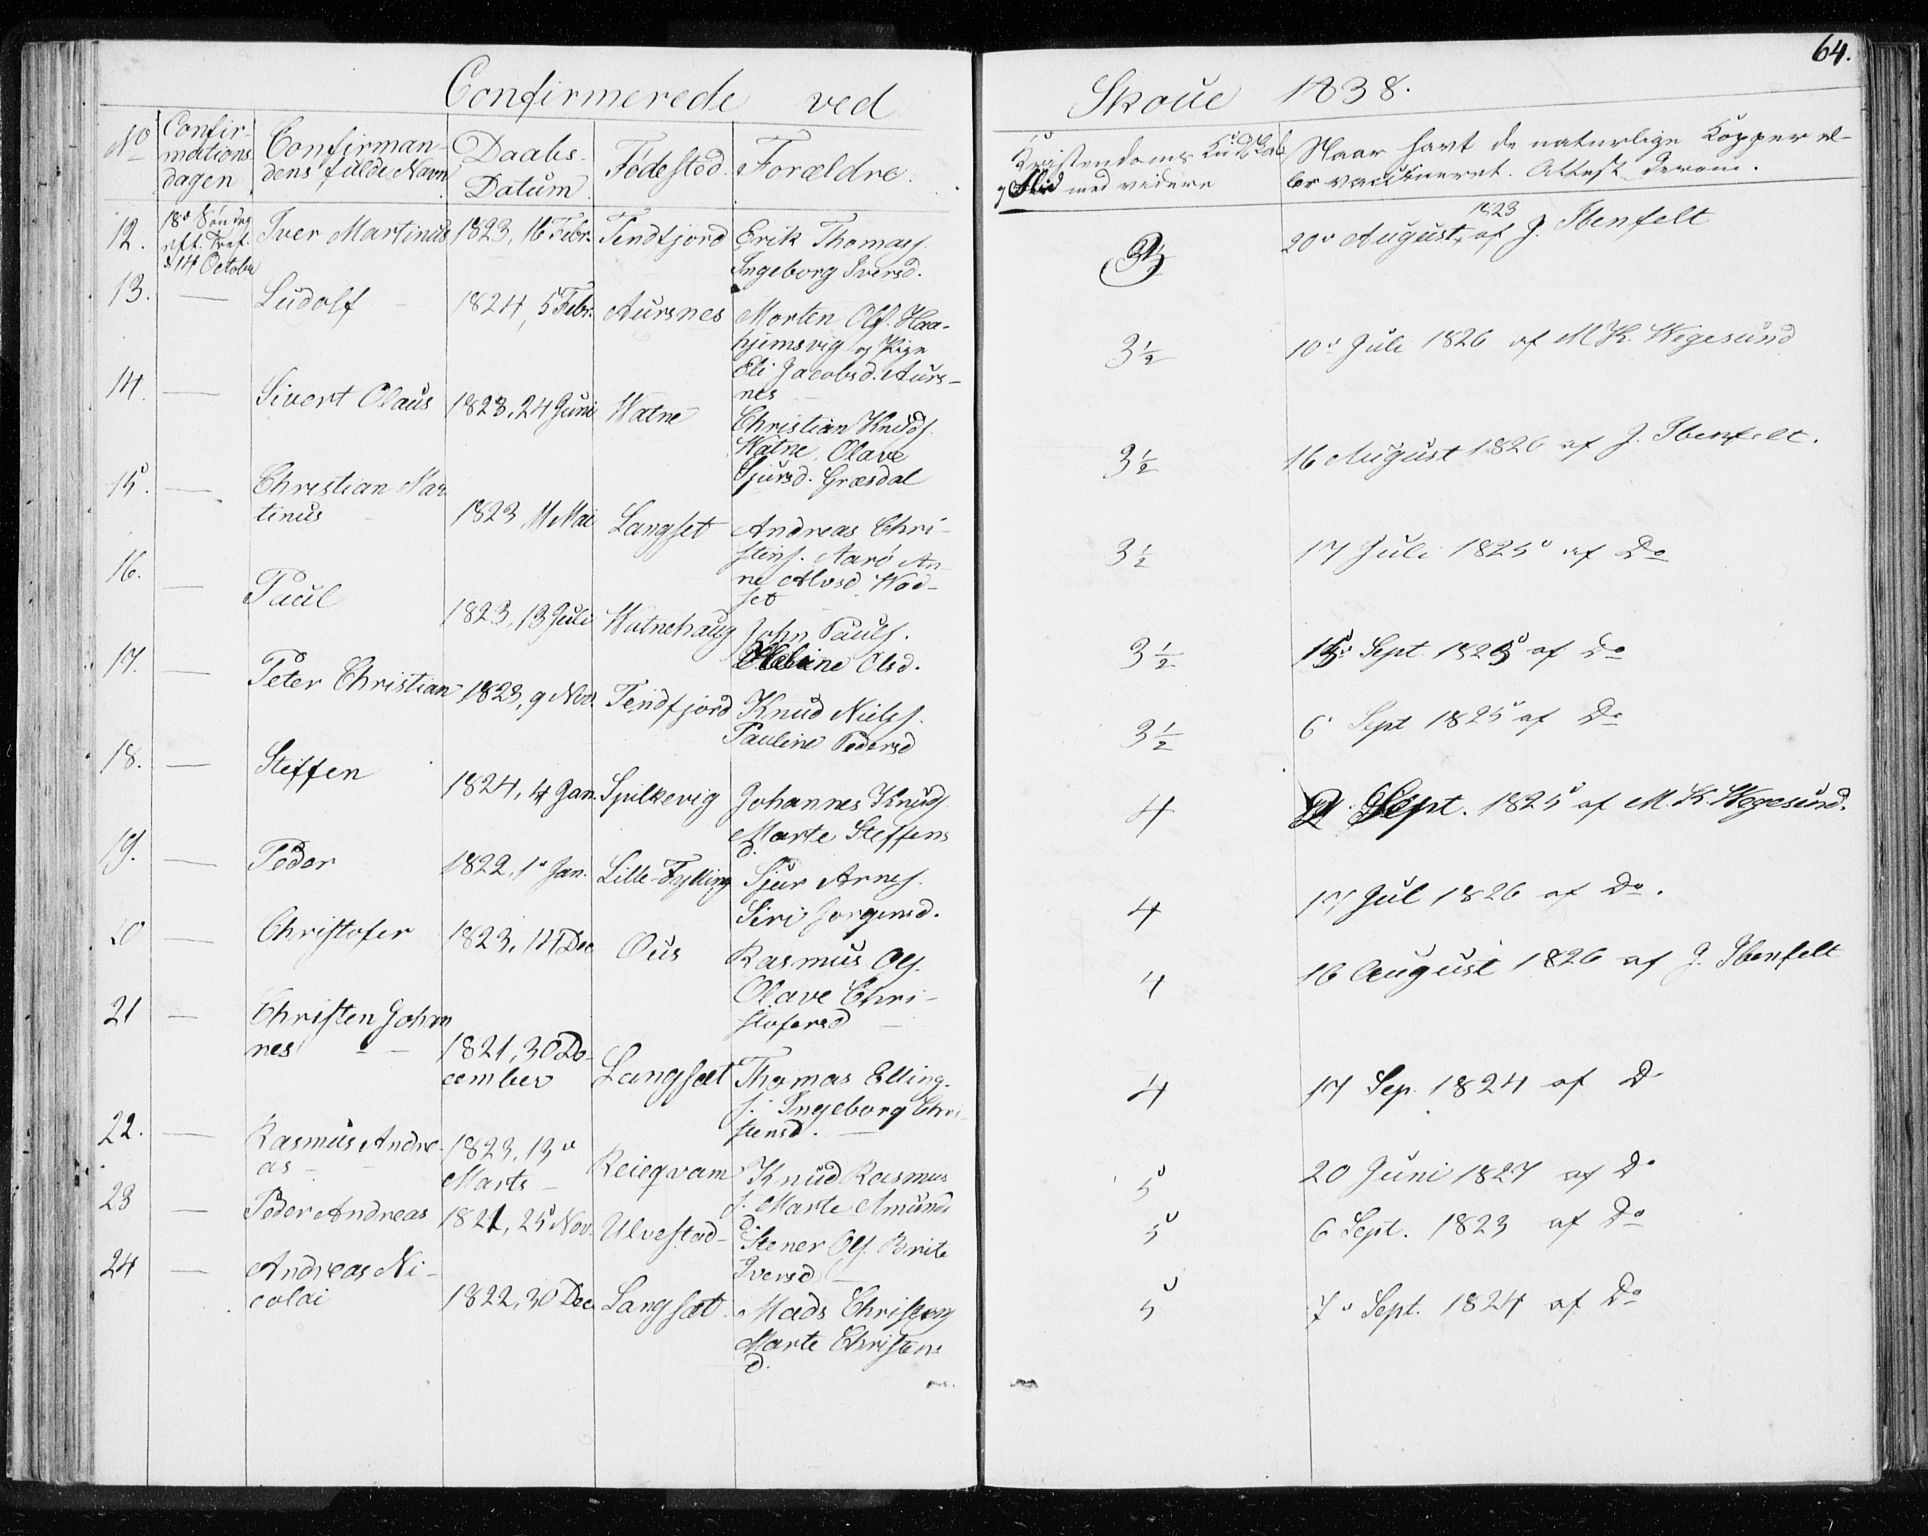 64.
Confirmerede ved Skoue 1838.
No Confirmations dagen Confirmandens fulde Navn Daabs Datum Fødested Forældre. Kristendoms Kundskab og Flid med videre Naar havt de naturlige Kopper eller vaccineret. Attest derom.
12. 18de Søndag eft. Tref. d 14 October Iver Martinus 1823, 16 Febr. Tendfjord Erik Thomass. Ingeborg Iversd. 3½ 20de August 1823 af J. Ibenfelt
13. — Ludolf 1824, 5 Febr. Aursnes Morten Ols. Haahjemsvig og Pige Eli Jacobsd. Aursnes 3½ 10de Juli 1826 af M K. Wegesund
14. — Sivert Olaus 1823, 24 Juni Watne Christian Knuds. Watne, Olave Sjursd. Græsdal 3½ 16 August 1826 af J. Ibenfelt.
15. — Christian Martinus 1823, 11 Mai Langset Andreas Christens. Aarö Anne Alvsd. Wadset 3½ 17 Juli 1825 af Do
16. — Paul 1823, 13 Juli Watnehaug John Pauls. Olsd. 3½ 15 Sept 1825 af Do
17. — Peter Christian 1823, 9 Nov. Tendfjord Knud Niels. Pauline Pedersd 3½ 6 Sept 1825 af Do
18. — Steffen 1824, 4 Jan. Spilkevig Johannes Knuds Marte Steffensd. 4 Sept. 1825 af M. K. Wegesund.
19. — Peder 1822, 1 Jan. Lille-Fylling Sjur Arnes. Siri Jørgensd. 4 17 Jul 1826 af Do.
20 — Christofer 1823, 14 Dec Ous Rasmus Ols. Olave Christofersd 4 16 August 1826 af J. Ibenfelt
21 — Christen Johannes 1821, 30 December Langsæt Thomas Ellings. Ingeborg Christensd. — 4 17 Sep. 1824 af D
22. — Rasmus Andreas 1823, 13 Marts Reieqvam Knud Rasmus s. Marte Amundsd. 5 20 Juni 1827 af Do
23 — Peder Andreas 1821, 25 Nov. Ulvestad Stener Ols. Brite Iversd 5 6 Sept. 1823 af Do
24 — Andreas Nicolai 1822, 30 Dec Langsæt Mads Christens Marte Christensd. 5 7 Sept. 1824 af Do